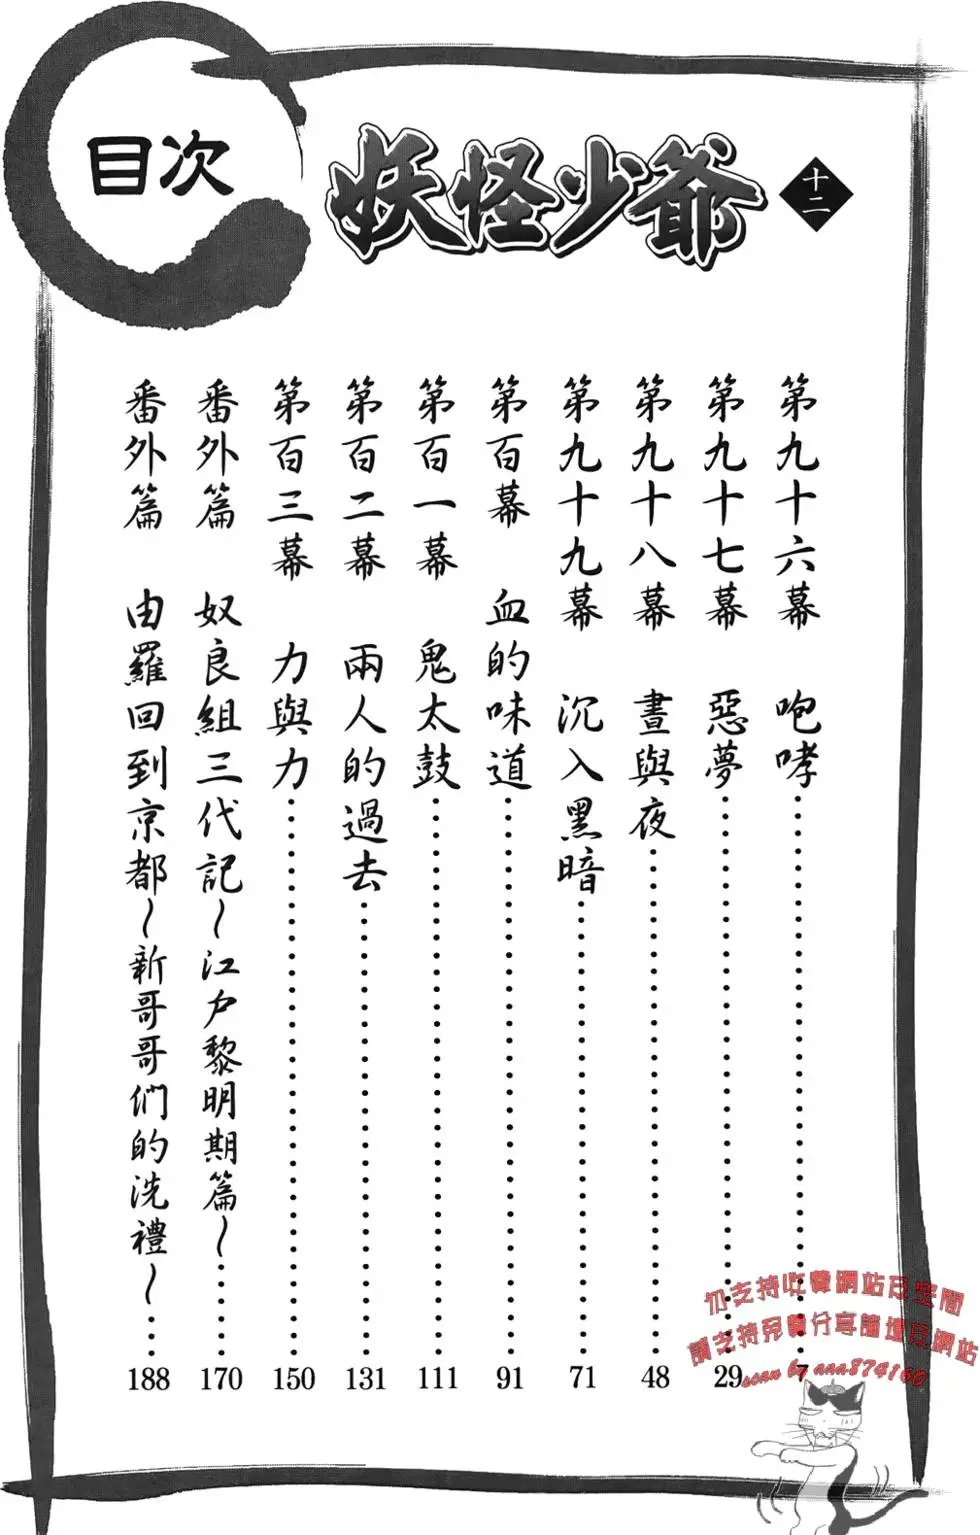 目次
妖怪少爺
十二
第九十六幕 咆哮……7
第九十七幕 惡夢……29
第九十八幕 晝與夜……48
第九十九幕 沉入黑暗……71
第百幕 血的味道……91
第百一幕 鬼太鼓……111
第百二幕 兩人的過去……131
第百三幕 力與力……150
番外篇 奴良組三代記～江戶黎明期篇～……170
番外篇 由羅回到京都～新哥哥們的洗禮～……188
勿支持收費網站及空間
請支持免費分享論壇及網站
scan by ana874160